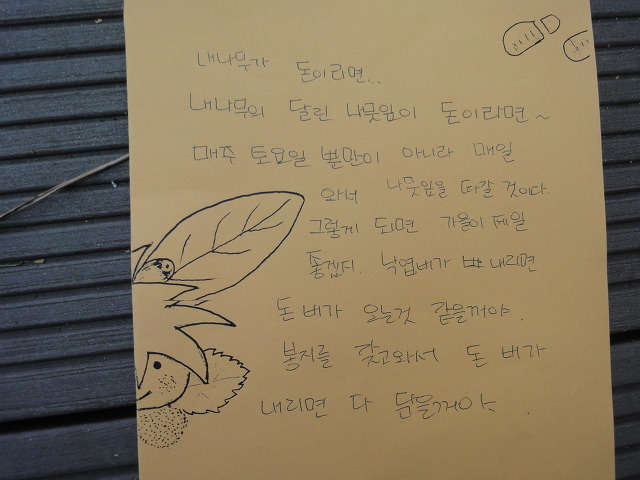 내나무가 돈이라면..
내나무의 달린 나뭇잎이 돈이라면~
매주 토요일 뿐만이 아니라 매일
와녀 나뭇잎을 따갈 것이다.
그렇게 되면 가을이 제일
좋겠지. 낙엽비가 내리면
돈 비가 오는것 같을꺼야.
봉지를 찾고와서 돈 비가
내리면 다 담을꺼야.